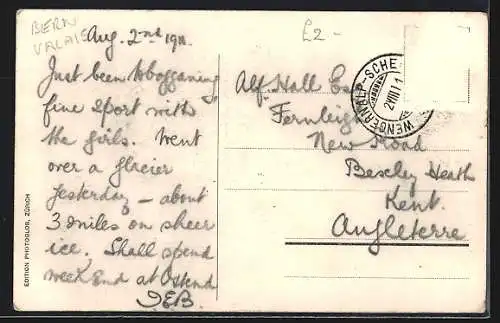 BERN
VALAIS
£2-
Aug. 2nd 1911.
Just been tobogganing
fine sport with
the girls. Went
over a glacier
yesterday - about
3 miles on sheer
ice. Shall spend
week end at Ostend
Alf. Hall Es
Fernleigh
New Road
Bexley Heath
Kent.
Angleterre
WENGERNALP-SCHE
2 VIII 11
EDITION PHOTOGLOB, ZÜRICH